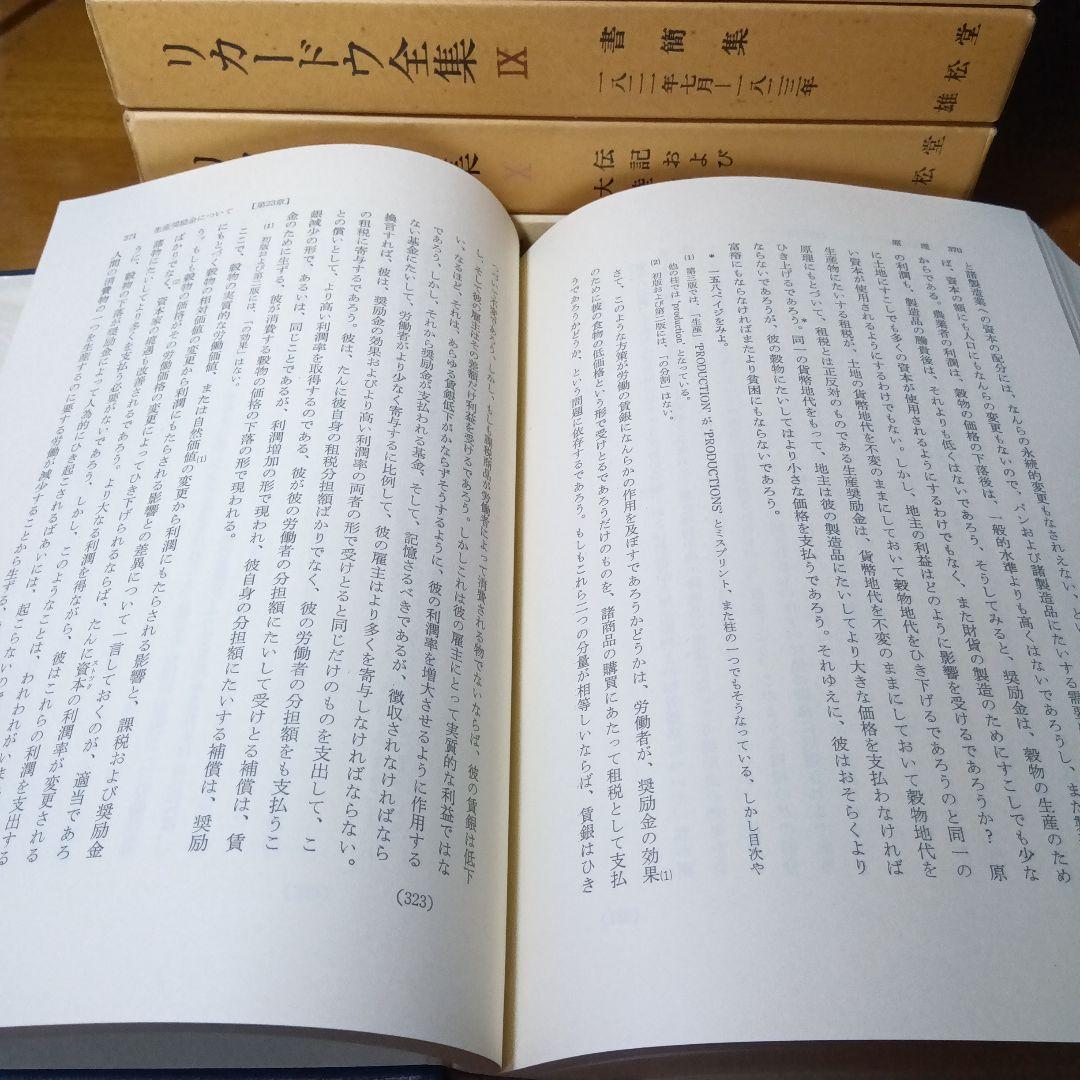 リカードウ全集 IX
書簡集
一八二一年七月―一八二三年
雄松堂
X
伝記および
松堂
原理 370
と諸製造業への資本の配分には、なんらの永続的変更もなされえない、
ば、資本の額にも人口にもなんらの変更もないので、パンおよび諸製造品にたいする需要
からである。農業者の利潤は、穀物の価格の下落後は、一般的水準よりも高くはないであろうし、また
の利潤も、製造品の騰貴後は、それよりも低くはないであろう、そうしてみると、奨励金は、穀物の生産のため
に土地にすこしでも多くの資本が使用されるようにするわけでもなく、また財貨の製造のためにすこしでも少な
い資本が使用されるようにするわけでもない。しかし、地主の利益はどのように影響を受けるであろうか? 原
生産物にたいする租税が、土地の貨幣地代を不変のままにしておいて穀物地代をひき下げるであろうのと同一の
原理にもとづいて、租税とは正反対のものである生産奨励金は、貨幣地代を不変のままにしておいて穀物地代を
ひき上げるであろう。*同一の貨幣地代をもって、地主は彼の製造品にたいしてより大きな価格を支払わなければ
ならないであろうが、彼の穀物にたいしてはより小さな価格を支払うであろう。それゆえに、彼はおそらくより
富裕にもならなければまたより貧困にもならないであろう。
* 一五八ページをみよ。
(1) 第三版では、「生産」'PRODUCTION' が 'PRODUCTIONS' とミスプリント、また柱の一つでもそうなっている、しかし目次や
他の柱では 'production' となっている。
(2) 初版および第二版には、「の分割」はない。
さて、このような方策が労働の賃銀になんらかの作用を及ぼすであろうかどうかは、労働者が、奨励金の効果(1)
のために彼の食物の低価格という形で受けとるであろうだけのものを、諸商品の購買にあたって租税として支払
うであろうかどうか、という問題に依存するであろう。もしもこれら二つの分量が相等しいならば、賃銀はひき
しかし、もしも課税商品が労働者によって消費される物でないならば、彼の賃銀は低下
し、そして彼の雇主はその差額だけ利益を受けるであろう。しかしこれは彼の雇主にとって実質的な利益ではな
い、なるほど、それは、あらゆる賃銀低下がかならずそうするように、彼の利潤率を増大させるように作用する
であろう。しかし、それから奨励金が支払われる基金、そして、記憶さるべきであるが、徴収されなければなら
ない基金にたいして、労働者がより少なく寄与するに比例して、彼の雇主はより多くを寄与しなければならない。
換言すれば、彼は、奨励金の効果およびより高い利潤率の両者の形で受けとると同じだけのものを支出して、こ
の租税に寄与するであろう。彼は、たんに彼自身の租税分担額ばかりでなく、彼の労働者の分担額をも支払うこ
との償いとして、より高い利潤率を取得するのである、彼が彼の労働者の分担額にたいして受けとる補償は、賃
銀減少の形で、あるいは、同じことであるが、利潤増加の形で現われ、彼自身の分担額にたいする補償は、奨励
金のために生ずる、彼が消費する穀物の価格の下落の形で現われる。
(323)
(1) 初版および第二版には、「の効果」はない。
ここで、穀物の実質的な労働価値、または自然価値の変更から利潤にもたらされる影響と、課税および奨励金
にもとづく、穀物の相対価値の変更から利潤にもたらされる影響との差異について一言しておくのが、適当であろ
う。もしも穀物の価格がその労働価格の変更によってひき下げられるならば、たんに資本の利潤率が変更される
ばかりでなく、資本家の境遇も改善されるであろう。より大なる利潤を得ながら、彼はこれらの利潤を支出する
落物にたいしてより多くを支払う必要がないであろう、しかし、このようなことは、われわれがいま
うに、穀物の下落が奨励金によって人為的にひき起こされるばあいには、起こらない
人間の消費物の一つを生産するのに要する労働が減少することから生ずる、
[第23章] 生産奨励金について 371